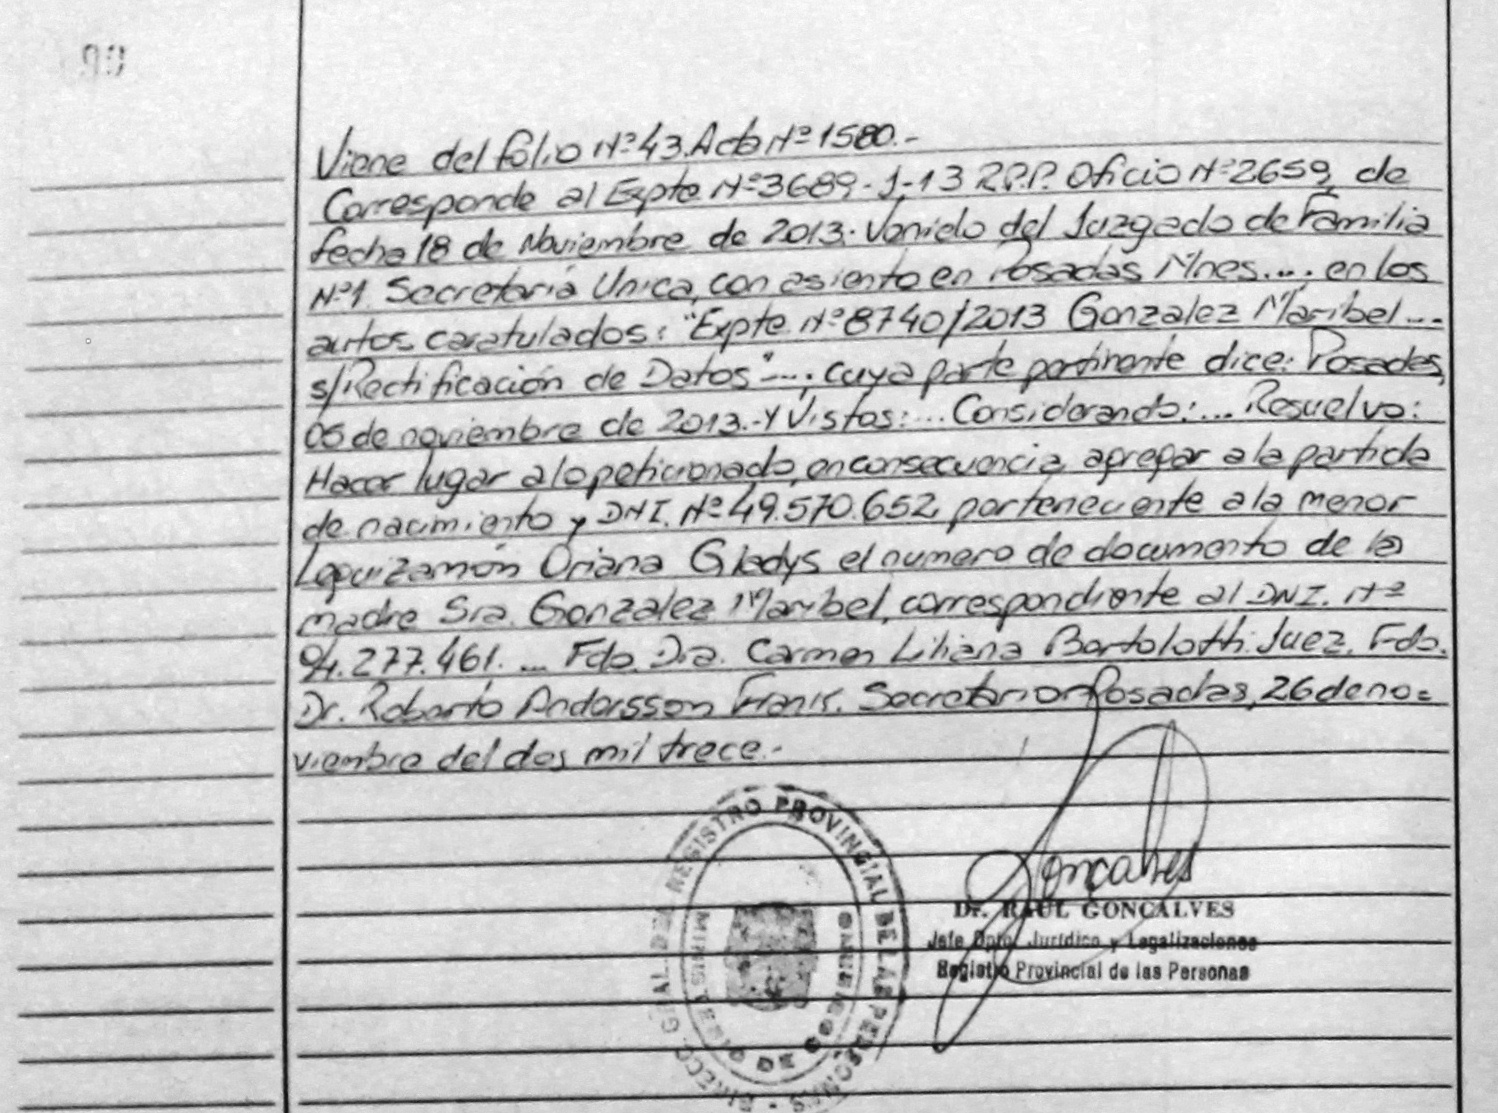 Viene del folio Nº 43. Acta Nº 1580.-
Corresponde al Expte Nº 3689-J-13 R.P.P. Oficio Nº 2659, de
fecha 18 de Noviembre de 2013. Venido del Juzgado de Familia
Nº1. Secretaría Unica, con asiento en Posadas Mnes.... en los
autos caratulados: "Expte. Nº 8740/2013 Gonzalez Maribel ...
s/Rectificación de Datos"...; cuya parte pertinente dice: Posadas,
05 de noviembre de 2013.- Y Vistos:... Considerando:... Resuelvo:
Hacer lugar a lo peticionado, en consecuencia agregar a la partida
de nacimiento y DNI. Nº 49.570.652, perteneciente a la menor
Leguizamón Oriana Gladys el numero de documento de la
madre Sra. Gonzalez Maribel, correspondiente al DNI. Nº
94.277.461. ... Fdo. Dra. Carmen Liliana Bartolotti. Juez. Fdo.
Dr. Roberto Andersson Frank. Secretario. Posadas, 26 de no=
viembre del dos mil trece.-
REGISTRO PROVINCIAL DE LAS PERSONAS
GRAL. DEL
MINISTERIO DE GOBIERNO
Goncalves
Dr. RAUL GONCALVES
Jefe Dpto. Jurídico y Legalizaciones
Registro Provincial de las Personas